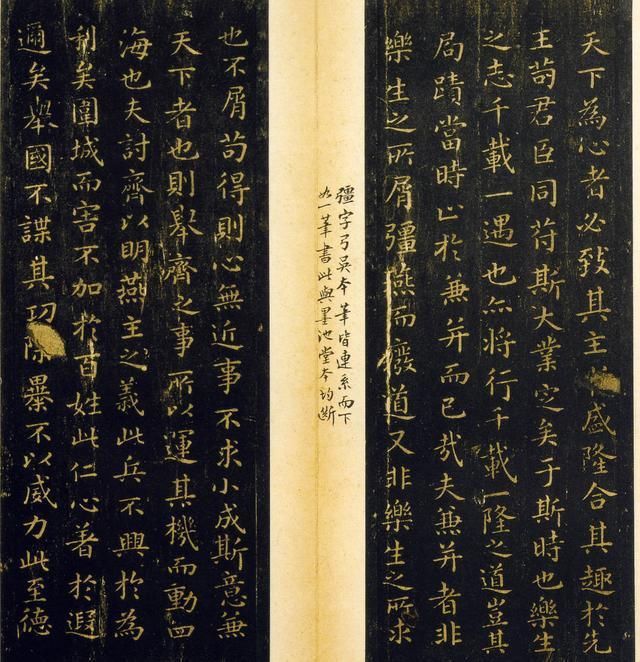 天下為心者必致其主盛隆合其趣於先
王苟君臣同苻斯大業定矣于斯時也樂生
之志千載一遇也亦將行千載一隆之道豈其
局蹟當時止於兼并而已哉夫兼并者非
樂生之所屑彊燕而廢道又非樂生之所求
彊字弓吳本筆皆連系而下
如一筆書此與墨池堂本均斷
也不屑苟得則心無近事不求小成斯意兼
天下者也則舉齊之事所以運其機而動四
海也夫討齊以明燕主之義此兵不興於為
利矣圍城而害不加於百姓此仁心著於遐
邇矣舉國不謀其功除暴不以威力此至德